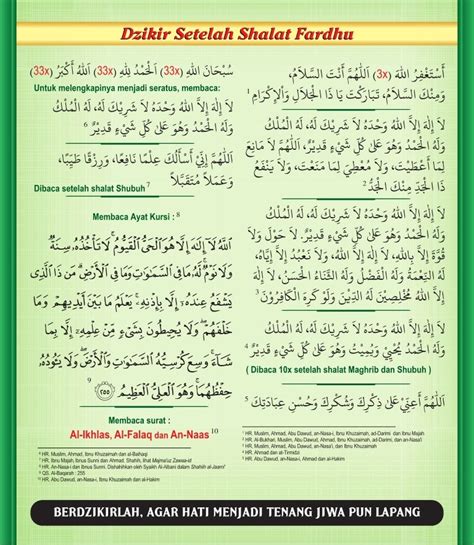 Dzikir Setelah Shalat Fardhu
أَسْتَغْفِرُ اللهَ (3x) اَللَّهُمَّ أَنْتَ السَّلاَمُ،
وَمِنْكَ السَّلاَمُ، تَبَارَكْتَ يَا ذَا الْجَلاَلِ وَاْلإِكْرَامِ 1
لاَ إِلَهَ إِلاَّ اللهُ وَحْدَهُ لاَ شَرِيْكَ لَهُ، لَهُ الْمُلْكُ
وَلَهُ الْحَمْدُ وَهُوَ عَلَى كُلِّ شَيْءٍ قَدِيْرٌ، اَللَّهُمَّ لاَ مَانِعَ
لِمَا أَعْطَيْتَ، وَلاَ مُعْطِيَ لِمَا مَنَعْتَ، وَلاَ يَنْفَعُ
ذَا الْجَدِّ مِنْكَ الْجَدُّ 2
لاَ إِلَهَ إِلاَّ اللهُ وَحْدَهُ لاَ شَرِيْكَ لَهُ، لَهُ الْمُلْكُ
وَلَهُ الْحَمْدُ وَهُوَ عَلَى كُلِّ شَيْءٍ قَدِيْرٌ. لاَ حَوْلَ وَلاَ
قُوَّةَ إِلاَّ بِاللهِ، لاَ إِلَهَ إِلاَّ اللهُ، وَلاَ نَعْبُدُ إِلاَّ إِيَّاهُ،
لَهُ النِّعْمَةُ وَلَهُ الْفَضْلُ وَلَهُ الثَّنَاءُ الْحَسَنُ، لاَ إِلَهَ
إِلاَّ اللهُ مُخْلِصِيْنَ لَهُ الدِّيْنَ وَلَوْ كَرِهَ الْكَافِرُوْنَ 3
لاَ إِلَهَ إِلاَّ اللهُ وَحْدَهُ لاَ شَرِيْكَ لَهُ، لَهُ الْمُلْكُ وَلَهُ
الْحَمْدُ يُحْيِيْ وَيُمِيْتُ وَهُوَ عَلَى كُلِّ شَيْءٍ قَدِيْرٌ 4
( Dibaca 10x setelah shalat Maghrib dan Shubuh )
اَللَّهُمَّ أَعِنِّي عَلَى ذِكْرِكَ وَشُكْرِكَ وَحُسْنِ عِبَادَتِكَ 5
1 HR. Muslim, Ahmad, Abu Dawud, an-Nasa'i, Ibnu Khuzaimah, ad-Darimi dan Ibnu Majah
2 HR. Al-Bukhari, Muslim, Abu Dawud, Ahmad, Ibnu Khuzaimah, ad-Darimi dan an-Nasa'i
3 HR. Muslim, Ahmad, Abu Dawud, an-Nasa'i, Ibnu Khuzaimah
4 HR. Ahmad dan at-Tirmidzi
5 HR. Abu Dawud, an-Nasa-i, Ahmad, Ibnu Khuzaimah dan al-Hakim
سُبْحَانَ اللهِ (33x) اَلْحَمْدُ لِلَّهِ (33x) اَللهُ أَكْبَرُ (33x)
Untuk melengkapinya menjadi seratus, membaca:
لاَ إِلَهَ إِلاَّ اللهُ وَحْدَهُ لاَ شَرِيْكَ لَهُ، لَهُ الْمُلْكُ
وَلَهُ الْحَمْدُ وَهُوَ عَلَى كُلِّ شَيْءٍ قَدِيْرٌ 6
اَللَّهُمَّ إِنِّي أَسْأَلُكَ عِلْمًا نَافِعًا، وَرِزْقًا طَيِّبًا،
وَعَمَلاً مُتَقَبَّلاً
Dibaca setelah shalat Shubuh 7
Membaca Ayat Kursi : 8
اَللهُ لَا إِلَهَ إِلَّا هُوَ الْحَيُّ الْقَيُّومُ لَا تَأْخُذُهُ سِنَةٌ
وَلَا نَوْمٌ لَهُ مَا فِي السَّمَاوَاتِ وَمَا فِي الْأَرْضِ مَنْ ذَا الَّذِي
يَشْفَعُ عِنْدَهُ إِلَّا بِإِذْنِهِ يَعْلَمُ مَا بَيْنَ أَيْدِيهِمْ وَمَا
خَلْفَهُمْ وَلَا يُحِيطُونَ بِشَيْءٍ مِنْ عِلْمِهِ إِلَّا بِمَا
شَاءَ وَسِعَ كُرْسِيُّهُ السَّمَاوَاتِ وَالْأَرْضَ وَلَا يَئُودُهُ
حِفْظُهُمَا وَهُوَ الْعَلِيُّ الْعَظِيمُ ٢٥٥ 9
Membaca surat :
Al-Ikhlas, Al-Falaq dan An-Naas 10
6 HR. Muslim, Ahmad, Abu Dawud, Ibnu Khuzaimah dan al-Baihaqi
7 HR. Ibnu Majah, Ibnus Sunni dan Ahmad. Shahih, lihat Majma'uz Zawaa-id
8 HR. an-Nasa-i dan Ibnus Sunni. Dishahihkan oleh Syaikh Al-Albani dalam Shahih al-Jaami'
9 QS. Al-Baqarah : 255
10 HR. Abu Dawud, an-Nasa-i, Ibnu Khuzaimah dan al-Hakim
BERDZIKIRLAH, AGAR HATI MENJADI TENANG JIWA PUN LAPANG